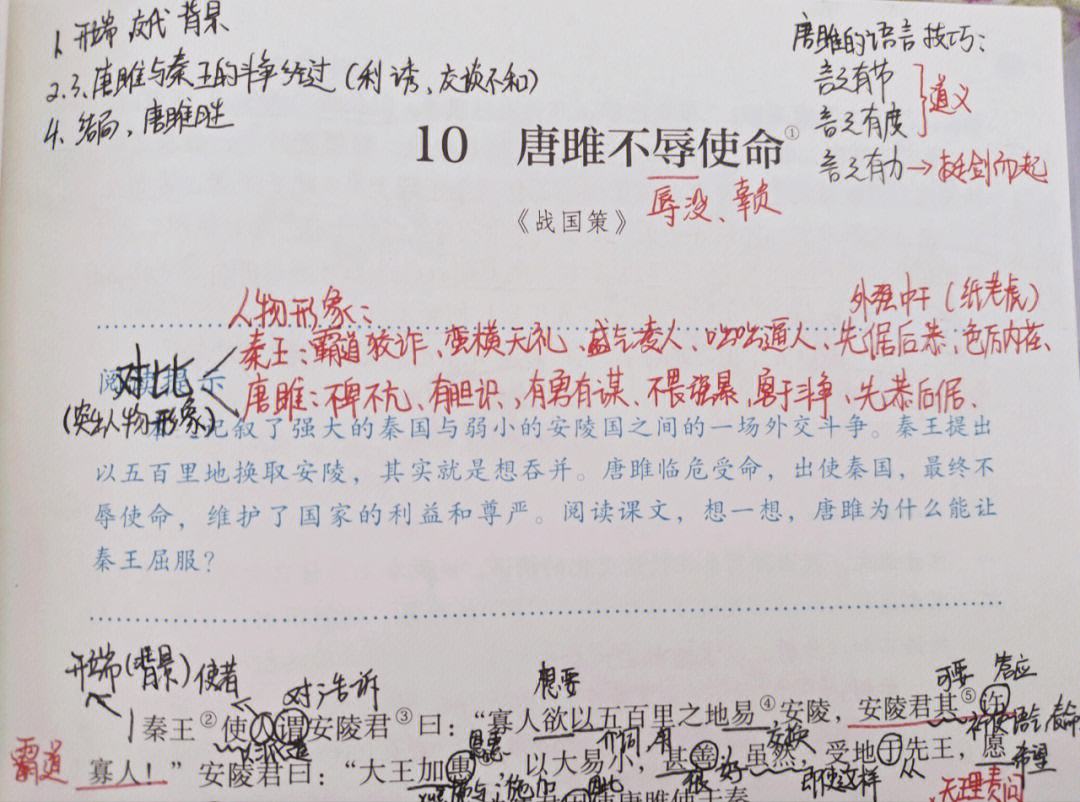 1. 开端 交代背景
2.3.唐雎与秦王的斗争经过（利诱、交谈不和）
4. 结局，唐雎胜
唐雎的语言技巧：
言之有节
言之有度
道义
言之有力→挺剑而起
10 唐雎不辱使命①
辱没、辜负
《战国策》
人物形象：
外强中干（纸老虎）
秦王：霸道狡诈、蛮横无礼、盛气凌人、咄咄逼人、先倨后恭、色厉内荏、
对比
唐雎：不卑不亢、有胆识、有勇有谋、不畏强暴、勇于斗争、先恭后倨、
阅读提示
(突出人物形象)
叙了强大的秦国与弱小的安陵国之间的一场外交斗争。秦王提出
以五百里地换取安陵，其实就是想吞并。唐雎临危受命，出使秦国，最终不
辱使命，维护了国家的利益和尊严。阅读课文，想一想，唐雎为什么能让
秦王屈服？
开端(背景) 使者 对 告诉 想要 可要 答应
秦王②使人谓安陵君③曰：“寡人欲以五百里之地易④安陵，安陵君其⑤许
派遣 恩惠 介词,用 交换 希望
霸道 寡人！”安陵君曰：“大王加惠，以大易小，甚善；虽然，受地于先王，愿
很 好 即使这样 从